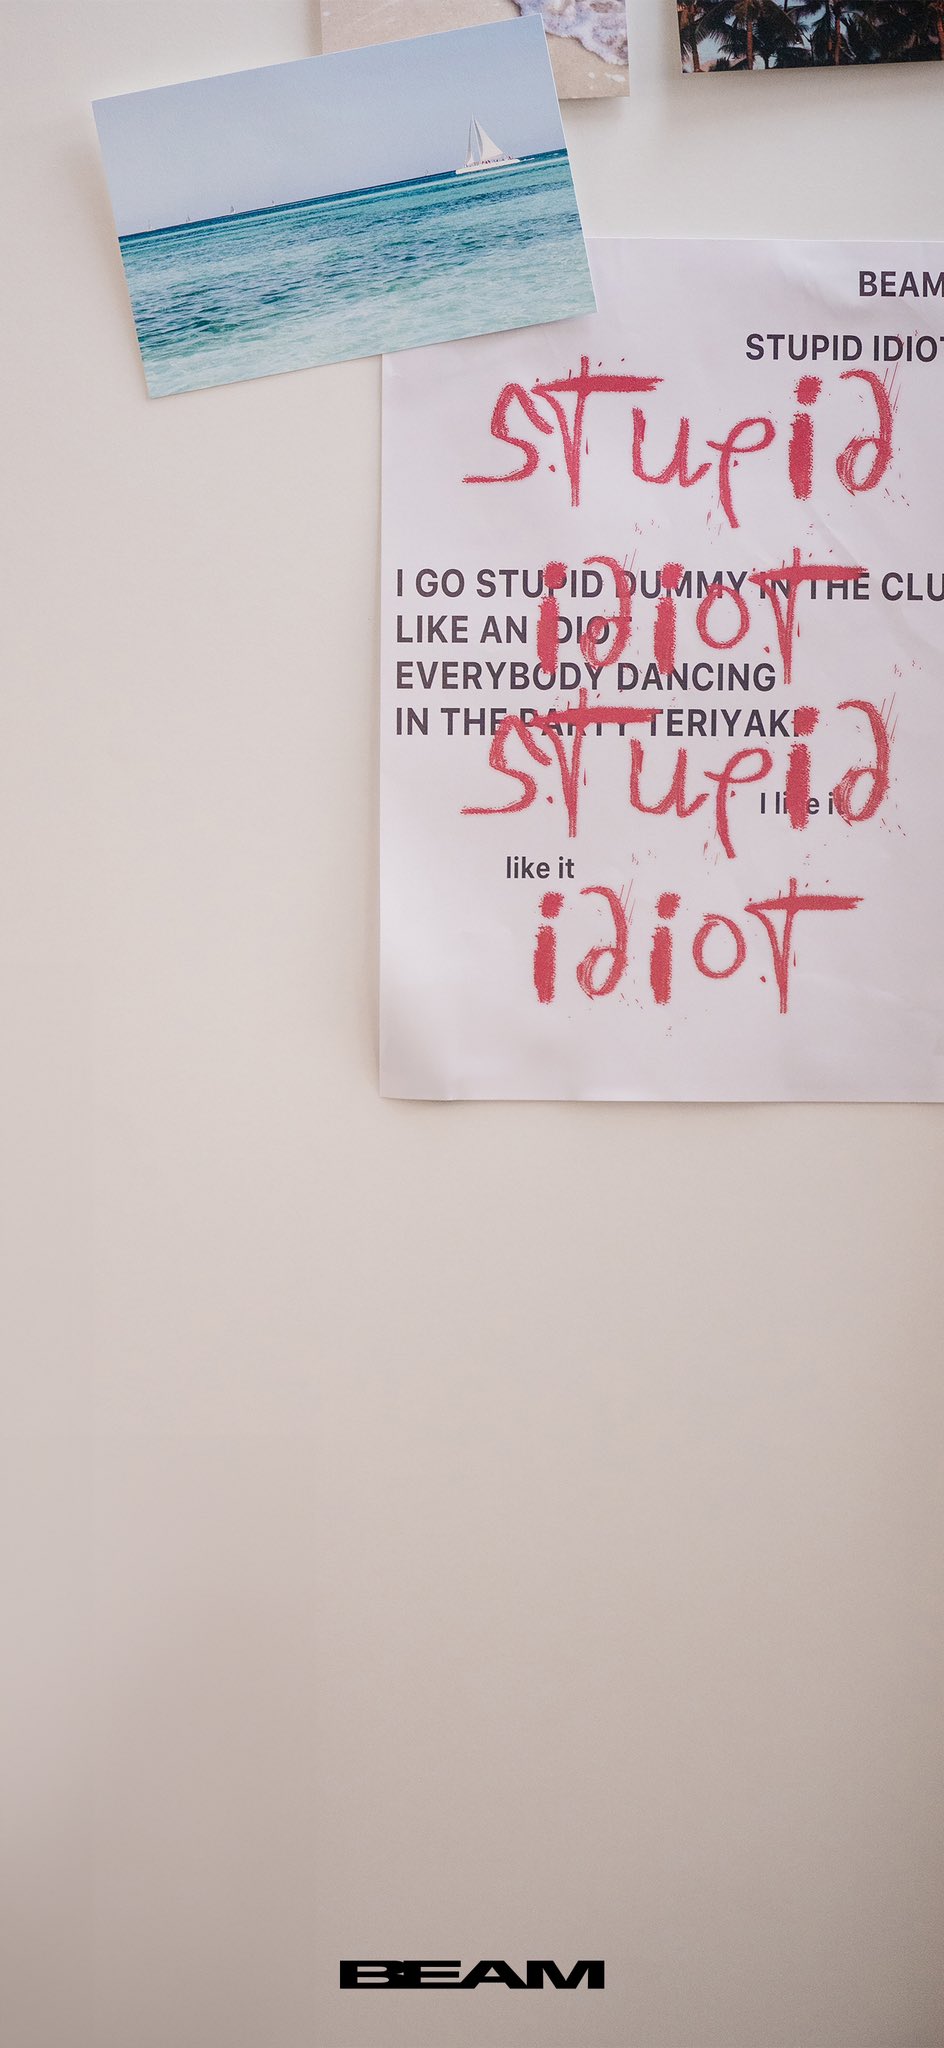 BEAM
STUPID IDIOT
stupid
I GO STUPID DUMMY IN THE CLU
idiot
LIKE AN IDIOT
EVERYBODY DANCING
IN THE PARTY TERIYAKI
stupid
I like it
like it
idiot
BEAM